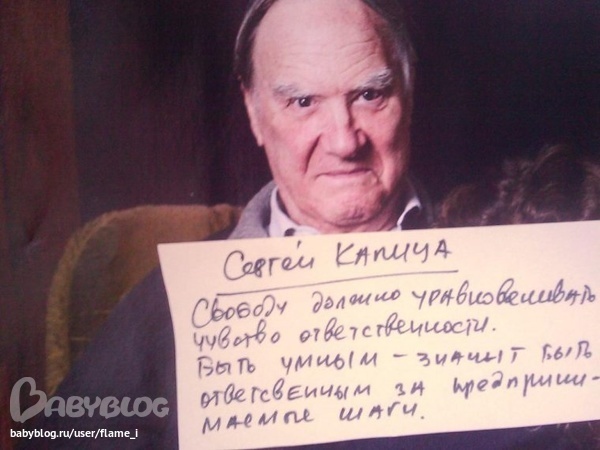 Сергей Капица
Свободу должно уравновешивать
чувство ответственности.
Быть умным – значит быть
ответсвенным за предприни-
маемые шаги.
BABYBLOG
babyblog.ru/user/flame_i